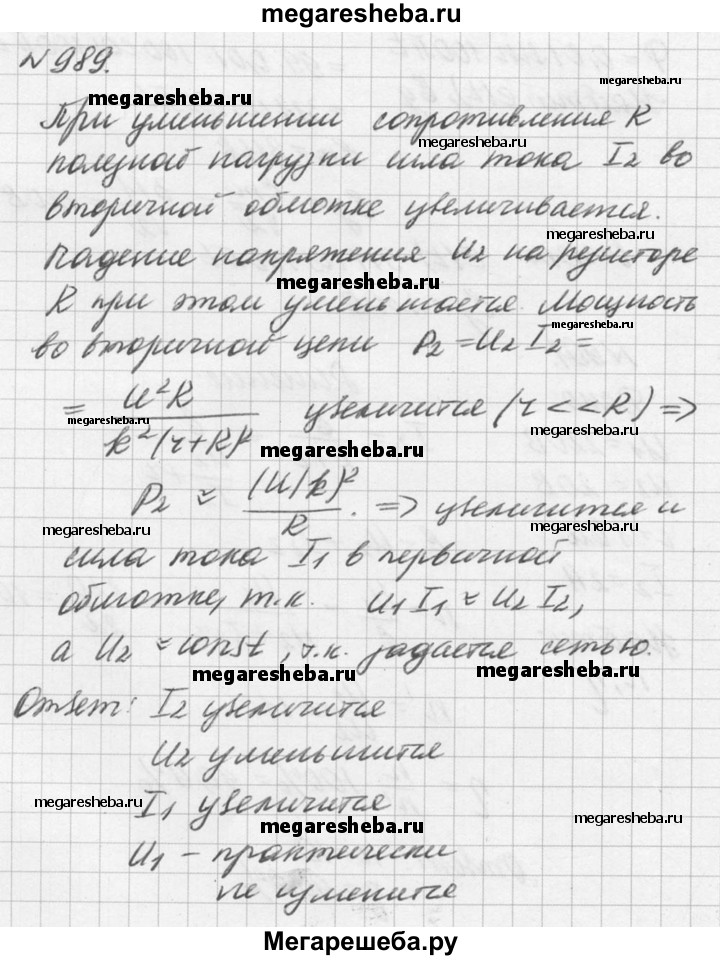 megaresheba.ru
№989.
megaresheba.ru
megaresheba.ru
При уменьшении сопротивления R
megaresheba.ru
полезной нагрузки сила тока I₂ во
megaresheba.ru
вторичной обмотке увеличивается.
Падение напряжения U₂ на резисторе
megaresheba.ru
megaresheba.ru
R при этом уменьшается. Мощность
megaresheba.ru
во вторичной цепи P₂ = U₂ I₂ =
megaresheba.ru
= U²R / k²(r+R)² увеличится (r << R) =>
megaresheba.ru
megaresheba.ru
P₂ ≈ (U/k)² / R. => увеличится и
megaresheba.ru
megaresheba.ru
сила тока I₁ в первичной
обмотке, т.к. U₁ I₁ ≈ U₂ I₂,
megaresheba.ru
а U₂ ≈ const, т.к. задается сетью.
megaresheba.ru
megaresheba.ru
Ответ: I₂ увеличится
U₂ уменьшится
megaresheba.ru
I₁ увеличится
megaresheba.ru
megaresheba.ru
U₁ - практически
не изменится
megaresheba.ru
Мегарешеба.ру